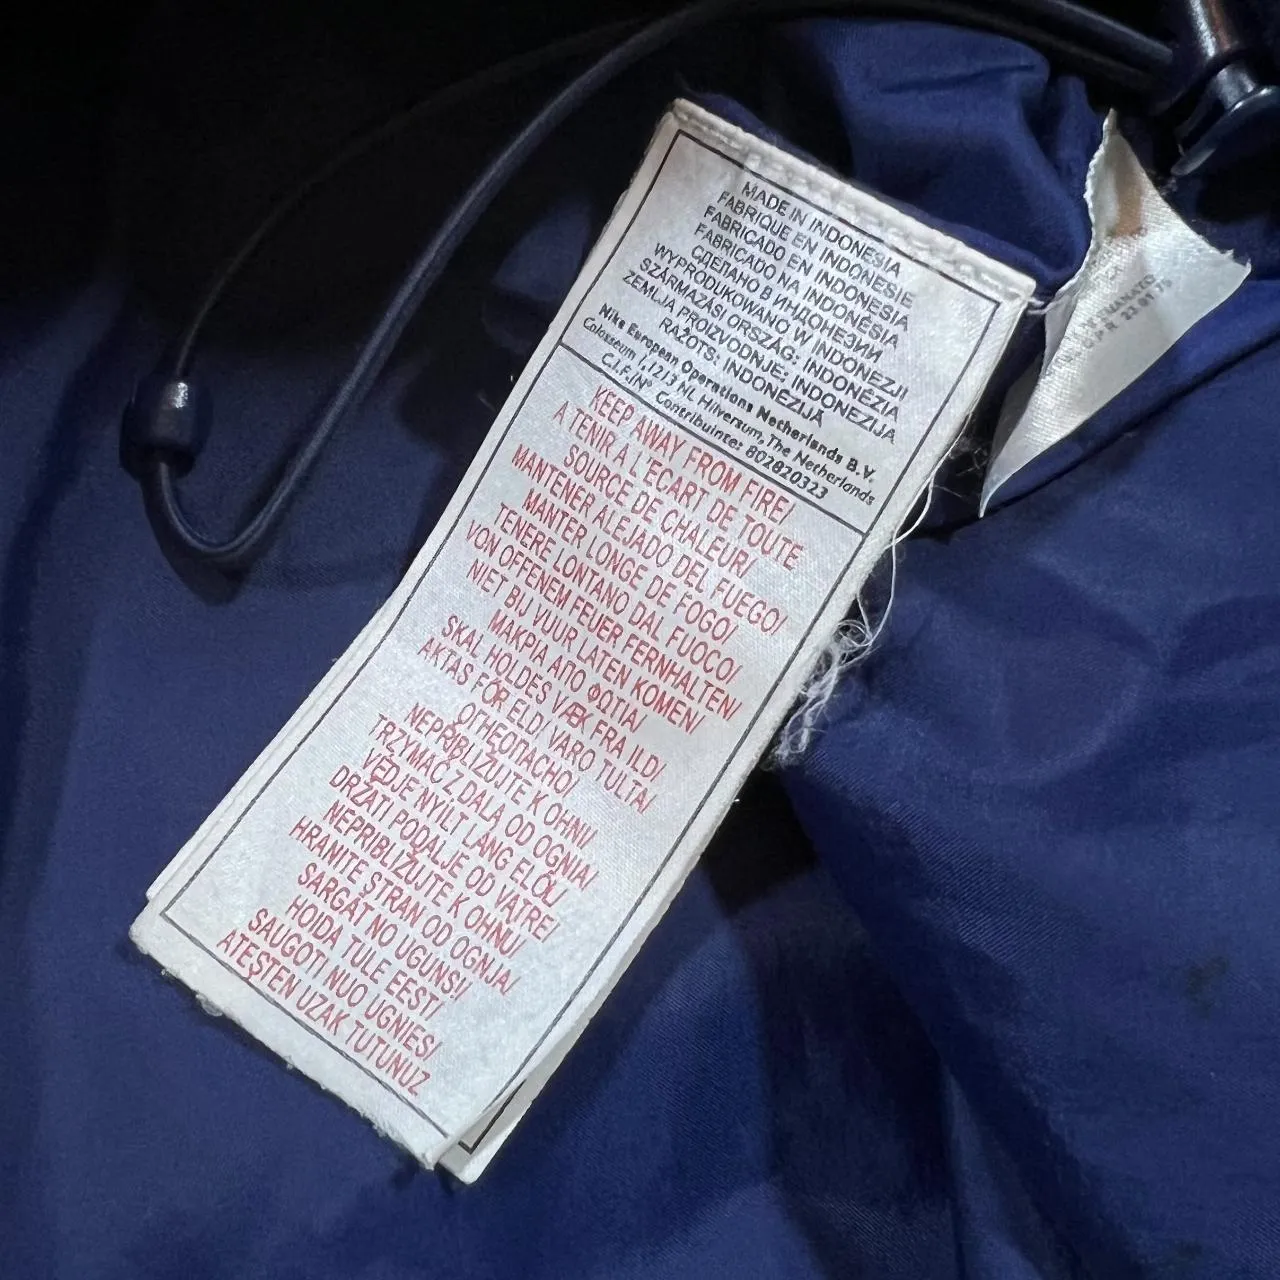 MADE IN INDONESIA
FABRIQUE EN INDONESIE
FABRICADO EN INDONESIA
FABRICADO NA INDONÉSIA
СДЕЛАНО В ИНДОНЕЗИИ
WYPRODUKOWANO W INDONEZJI
SZÁRMAZÁSI ORSZÁG: INDONÉZIA
ZEMLJA PROIZVODNJE: INDONEZIJA
RAŽOTS: INDONĒZIJĀ
Nike European Operations Netherlands B.V.
Colosseum 1, 1213 NL Hilversum, The Netherlands
C.I.F./Nº Contribuinte: 802820323
KEEP AWAY FROM FIRE/
A TENIR À L'ECART DE TOUTE
SOURCE DE CHALEUR/
MANTENER ALEJADO DEL FUEGO/
MANTER LONGE DE FOGO/
TENERE LONTANO DAL FUOCO/
VON OFFENEM FEUER FERNHALTEN/
NIET BIJ VUUR LATEN KOMEN/
ΜΑΚΡΙΑ ΑΠΟ ΦΩΤΙΑ/
SKAL HOLDES VÆK FRA ILD/
AKTAS FÖR ELD/ VARO TULTA/
ОГНЕОПАСНО/
NEPŘIBLIŽUJTE K OHNI/
TRZYMAĆ Z DALA OD OGNIA/
VÉDJE NYÍLT LÁNG ELŐL/
DRŽATI PODALJE OD VATRE/
NEPRIBLIŽUJTE K OHNU/
HRANITE STRAN OD OGNJA/
SARGĀT NO UGUNS!/
HOIDA TULE EEST/
SAUGOTI NUO UGNIES/
ATEŞTEN UZAK TUTUNUZ